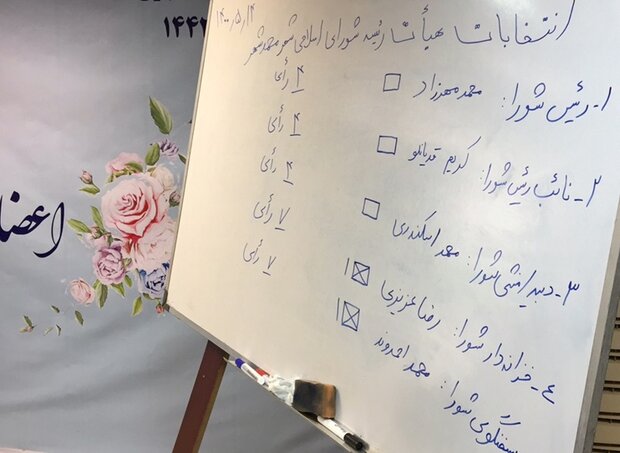 ۱۴۰۰/۵/۱۴
انتخابات هیأت رئیسه شورای اسلامی شهر محمدشهر
۱- رئیس شورا: محمد مهرزاد ۴ رأی
۲- نائب رئیس شورا: کریم قدیانلو ۴ رأی
۳- دبیر/منشی شورا: محمد اسکندری ۴ رأی
۴- خزانه‌دار شورا: رضا عزیزی ۱ ۷ رأی
سخنگوی شورا: محمد احدوند ۱ ۷ رأی
اعضا
۱۴۴۲